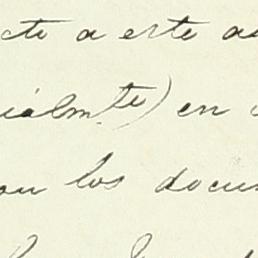 cto a este as
ialmte) en
on los docum